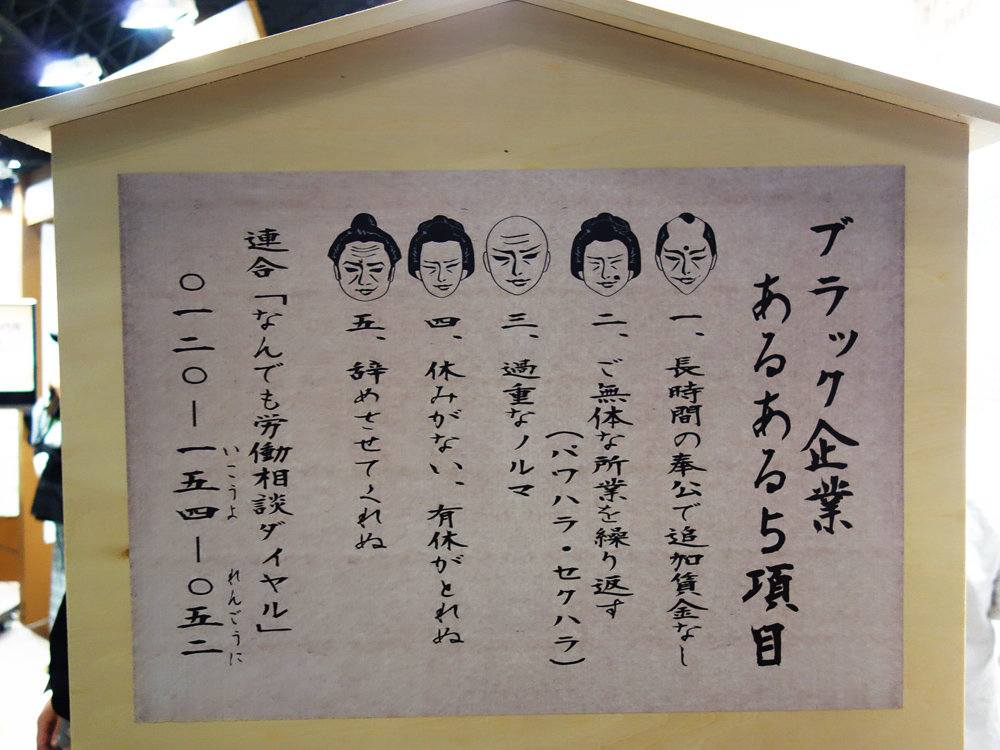 ブラック企業
あるある5項目
一、長時間の奉公で追加賃金なし
二、ご無体な所業を繰り返す
(パワハラ・セクハラ)
三、過重なノルマ
四、休みがない、有休がとれぬ
五、辞めさせてくれぬ
連合「なんでも労働相談ダイヤル」
いこうよ れんごうに
〇一二〇ー一五四ー〇五二